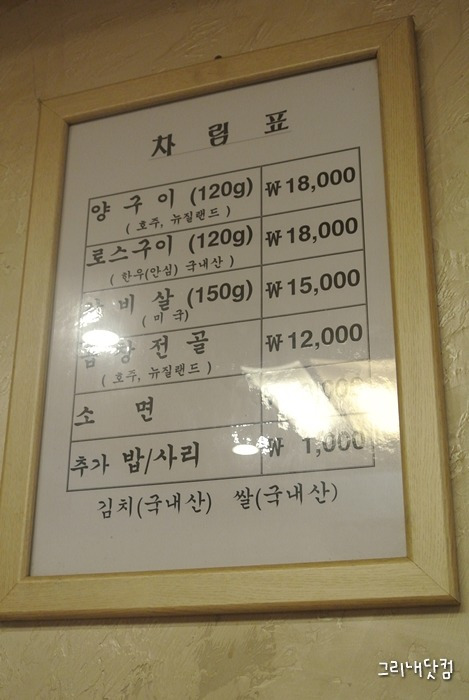 차 림 표
양 구 이 (120g) ₩18,000
( 호주, 뉴질랜드 )
로스구이 (120g) ₩18,000
( 한우(안심) 국내산 )
갈 비 살 (150g) ₩15,000
( 미 국)
전 골 ₩12,000
( 호주, 뉴질랜드 )
소 면
추가 밥/사리 ₩ 1,000
김치(국내산) 쌀(국내산)
그리내닷컴